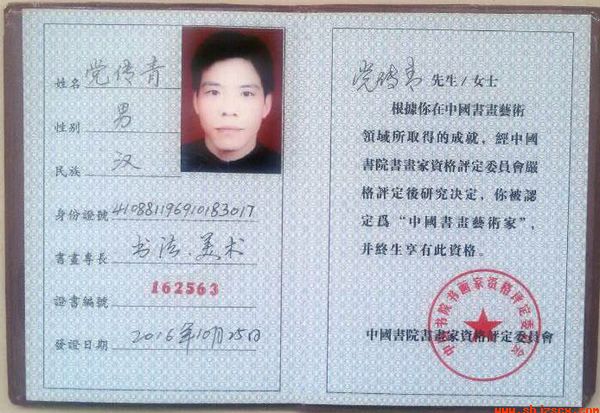 姓名 党传青
性别 男
民族 汉
身份證號 410881196910183017
書畫專長 书法.美术
證書編號 162563
發證日期 2016年10月25日
党传青 先生/女士
根據你在中國書畫藝術
領域所取得的成就，經中國
書院書畫家資格評定委員會嚴
格評定後研究决定，你被認
定爲“中國書畫藝術家”，
并終生享有此資格。
中国书院书画家资格评定委员会
中國書院書畫家資格評定委員會